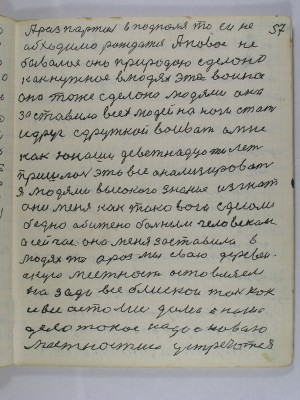 57
А раз партия в подполя то си не
обходимо рождатся А новое не
бывалое оно природою сделоно
как нужное в людях эта война
она тоже сделоно людями она
заставила всех людей на ноги стать
и друг с дружкой воевать а мне
как юноши деветнадцати лет
пришлось это все анализировать
я людями високого знания изгнат
они меня как такового сделали
бедно обижено больним человекам
а сейчас она меня заставила в
людях то а раз мы сваю деревен
скую местность оставляем
на зади все близкой так как
и все остолие дила а наше
дело такое надо с новаю
местностию устроется